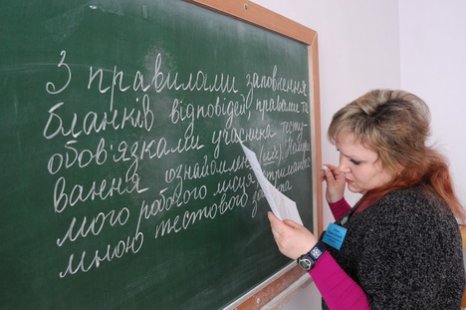 З правилами заповнення
бланків відповідей, правами та
обов'язками учасника тесту-
вання ознайомлена (ий). Номер
мого робочого місця, отриманого
мною тестового зошита